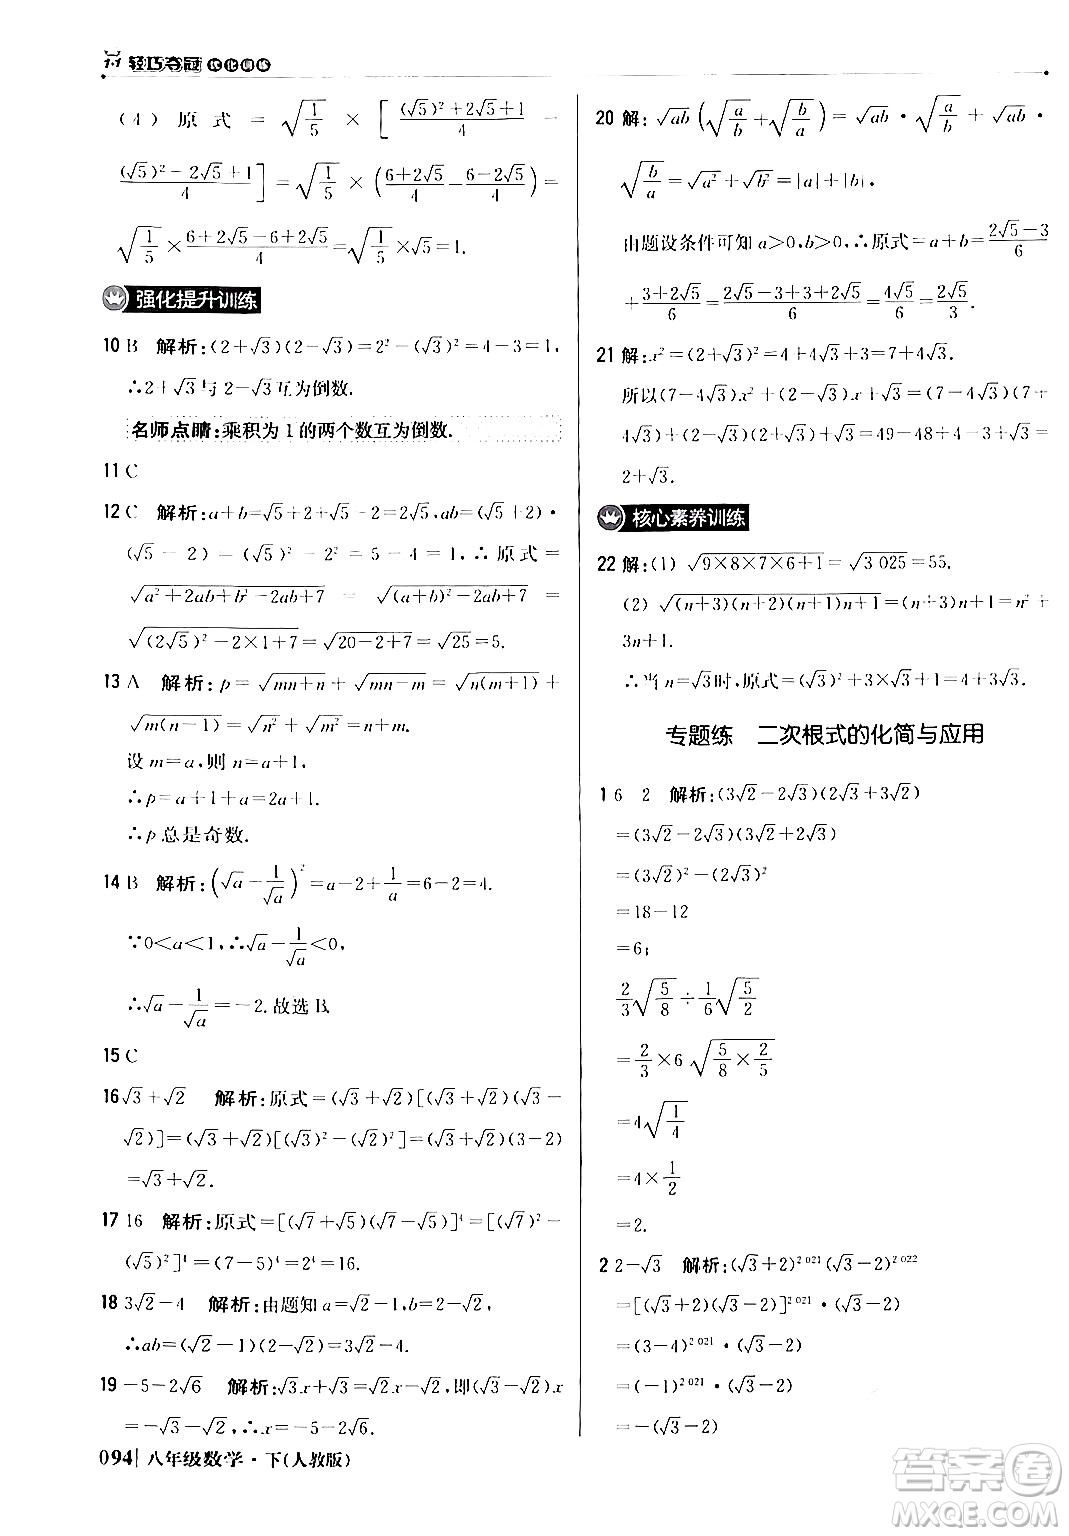 轻巧夺冠 优化训练
(4) 原式 = √(1/5) × [ ((√5)²+2√5+1)/4 −
((√5)²−2√5+1)/4 ] = √(1/5) × ( (6+2√5)/4 − (6−2√5)/4 ) =
√(1/5) × (6+2√5−6+2√5)/4 = √(1/5) × √5 = 1.
强化提升训练
10 B 解析:(2+√3)(2−√3)=2²−(√3)²=4−3=1,
∴2+√3与2−√3互为倒数.
名师点睛:乘积为1的两个数互为倒数.
11 C
12 C 解析:a+b=√5+2+√5−2=2√5,ab=(√5+2)·
(√5−2)=1,∴原式=
√(a²+2ab+b²−2ab+7) = √((a+b)²−2ab+7) =
√((2√5)²−2×1+7) = √(20−2+7) = √25 = 5.
13 A 解析:p=√(mn+n)+√(mn−m)=√(n(m+1))+
√(m(n−1))=√n²+√m²=n+m.
设m=a,则n=a+1.
∴p=a+1+a=2a+1.
∴p总是奇数.
14 B 解析:(√a−1/√a)²=a−2+1/a=6−2=4.
∵0<a<1,∴√a−1/√a<0,
∴√a−1/√a=−2.故选B.
15 C
16 √3+√2 解析:原式=(√3+√2)[(√3+√2)(√3−
√2)]=(√3+√2)[(√3)²−(√2)²]=(√3+√2)(3−2)
=√3+√2.
17 16 解析:原式=[(√7+√5)(√7−√5)]⁴=[(√7)²−
(√5)²]⁴=(7−5)⁴=2⁴=16.
18 3√2−4 解析:由题知a=√2−1,b=2−√2,
∴ab=(√2−1)(2−√2)=3√2−4.
19 −5−2√6 解析:√3x+√3=√2x−√2,即(√3−√2)x
=−√3−√2,∴x=−(√3+√2)/(√3−√2)=−5−2√6.
094 八年级数学·下(人教版)
20 解:√ab(√(a/b)+√(b/a))=√ab·√(a/b)+√ab·
√(b/a)=√a²+√b²=|a|+|b|.
由题设条件可知a>0,b>0,∴原式=a+b=(2√5−3)/6
+(3+2√5)/6=(2√5−3+3+2√5)/6=4√5/6=2√5/3.
21 解:x²=(2+√3)²=4+4√3+3=7+4√3.
所以(7−4√3)x²+(2−√3)x+√3=(7−4√3)(7+
4√3)+(2−√3)(2+√3)+√3=49−48+4−3+√3=
2+√3.
核心素养训练
22 解:(1) √(9×8×7×6+1)=√3 025=55.
(2) √((n+3)(n+2)(n+1)n+1)=(n+3)n+1=n²+
3n+1.
∴当n=√3时,原式=(√3)²+3×√3+1=4+3√3.
专题练 二次根式的化简与应用
1 6 2 解析:(3√2−2√3)(2√3+3√2)
=(3√2−2√3)(3√2+2√3)
=(3√2)²−(2√3)²
=18−12
=6;
2/3√(5/8)÷1/6√(5/2)
=2/3×6√(5/8×2/5)
=4√(1/4)
=4×1/2
=2.
2 2−√3 解析:(√3+2)²⁰²¹(√3−2)²⁰²²
=[(√3+2)(√3−2)]²⁰²¹·(√3−2)
=(3−4)²⁰²¹·(√3−2)
=(−1)²⁰²¹·(√3−2)
=−(√3−2)
答案圈
MXQE.COM